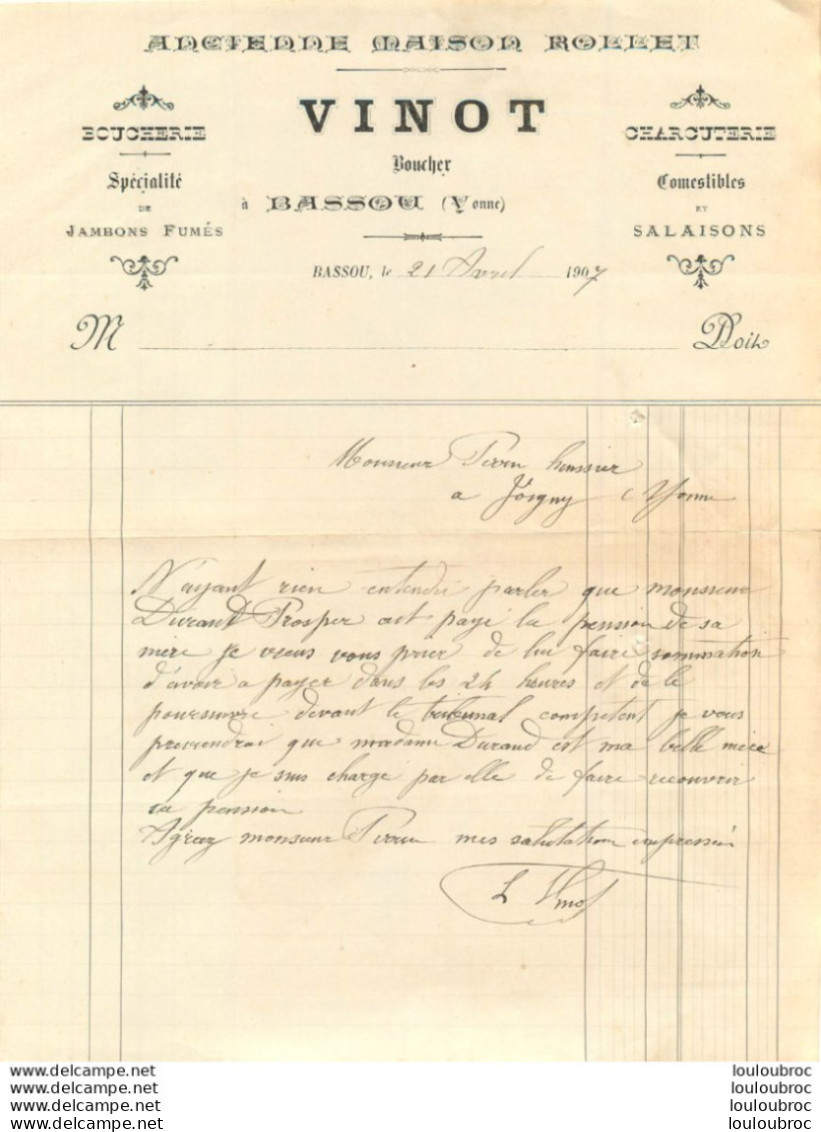 ANCIENNE MAISON ROLLET
VINOT
Boucher
à BASSOU (Yonne)
BOUCHERIE
Spécialité
DE
JAMBONS FUMÉS
CHARCUTERIE
Comestibles
ET
SALAISONS
BASSOU, le 21 Avril 1907
M Doit
Monsieur Perrin huissier
a Joigny Yonne
N'ayant rien entendu parler que monsieur
Durand Prosper ait payé la pension de sa
mère je viens vous prier de lui faire sommation
d'avoir a payer dans les 24 heures et de le
poursuivre devant le tribunal compétent je vous
previendrai que madame Durand est ma belle mère
et que je suis chargé par elle de faire recouvrir
sa pension
Agréez monsieur Perrin mes salutation empressée
L Vinot
www.delcampe.net
www.delcampe.net
www.delcampe.net
www.delcampe.net
louloubroc
louloubroc
louloubroc
louloubroc